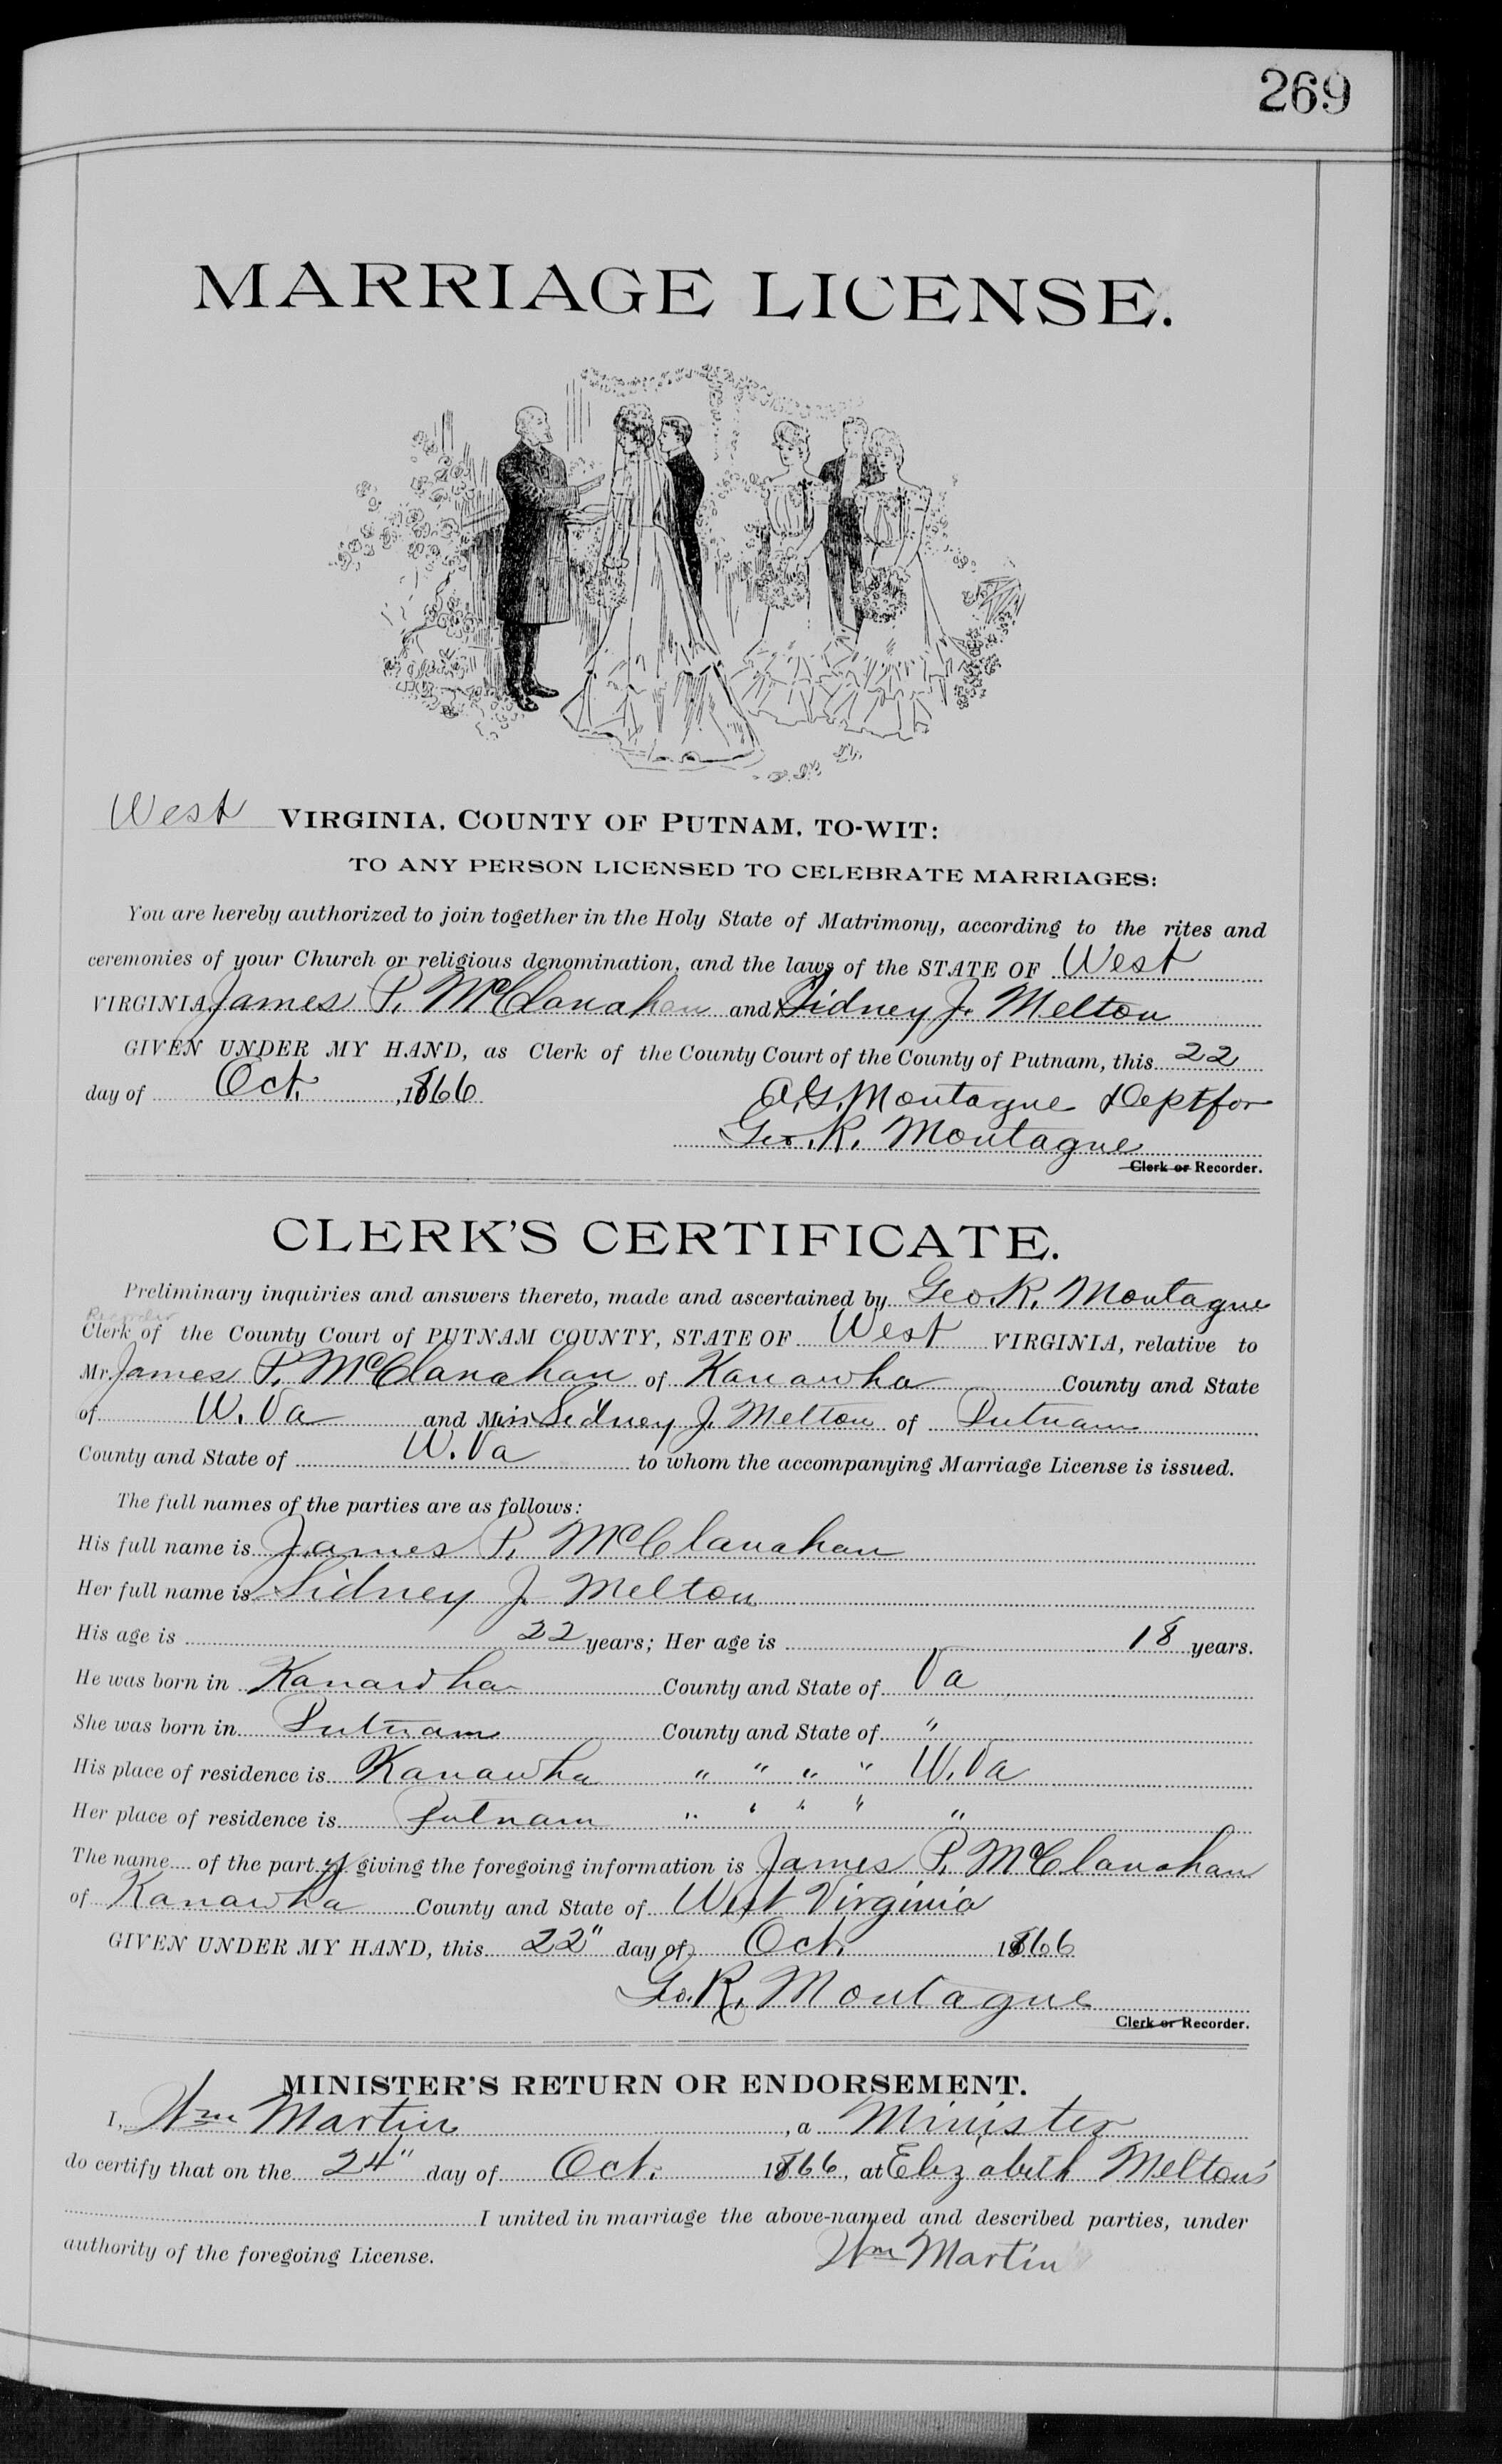 269
MARRIAGE LICENSE.
West VIRGINIA, COUNTY OF PUTNAM, TO-WIT:
TO ANY PERSON LICENSED TO CELEBRATE MARRIAGES:
You are hereby authorized to join together in the Holy State of Matrimony, according to the rites and
ceremonies of your Church or religious denomination, and the laws of the STATE OF West
VIRGINIA, James P. McClanahan and Sidney J. Melton
GIVEN UNDER MY HAND, as Clerk of the County Court of the County of Putnam, this 22
day of Oct. , 1866
A. G. Montague Dept for
Geo. R. Montague
Clerk or Recorder.
CLERK'S CERTIFICATE.
Preliminary inquiries and answers thereto, made and ascertained by Geo. R. Montague
Recorder
Clerk of the County Court of PUTNAM COUNTY, STATE OF West VIRGINIA, relative to
Mr. James P. McClanahan of Kanawha County and State
of W. Va and Miss Sidney J. Melton of Putnam
County and State of W. Va to whom the accompanying Marriage License is issued.
The full names of the parties are as follows:
His full name is James P. McClanahan
Her full name is Sidney J. Melton
His age is 22 years; Her age is 18 years.
He was born in Kanawha County and State of Va
She was born in Putnam County and State of "
His place of residence is Kanawha " " " " W. Va
Her place of residence is Putnam " " " " "
The name of the party giving the foregoing information is James P. McClanahan
of Kanawha County and State of West Virginia
GIVEN UNDER MY HAND, this 22" day of Oct. 1866
Geo. R. Montague
Clerk or Recorder.
MINISTER'S RETURN OR ENDORSEMENT.
I, Wm Martin , a Minister
do certify that on the 24" day of Oct. 1866, at Elizabeth Melton's
I united in marriage the above-named and described parties, under
authority of the foregoing License.
Wm Martin